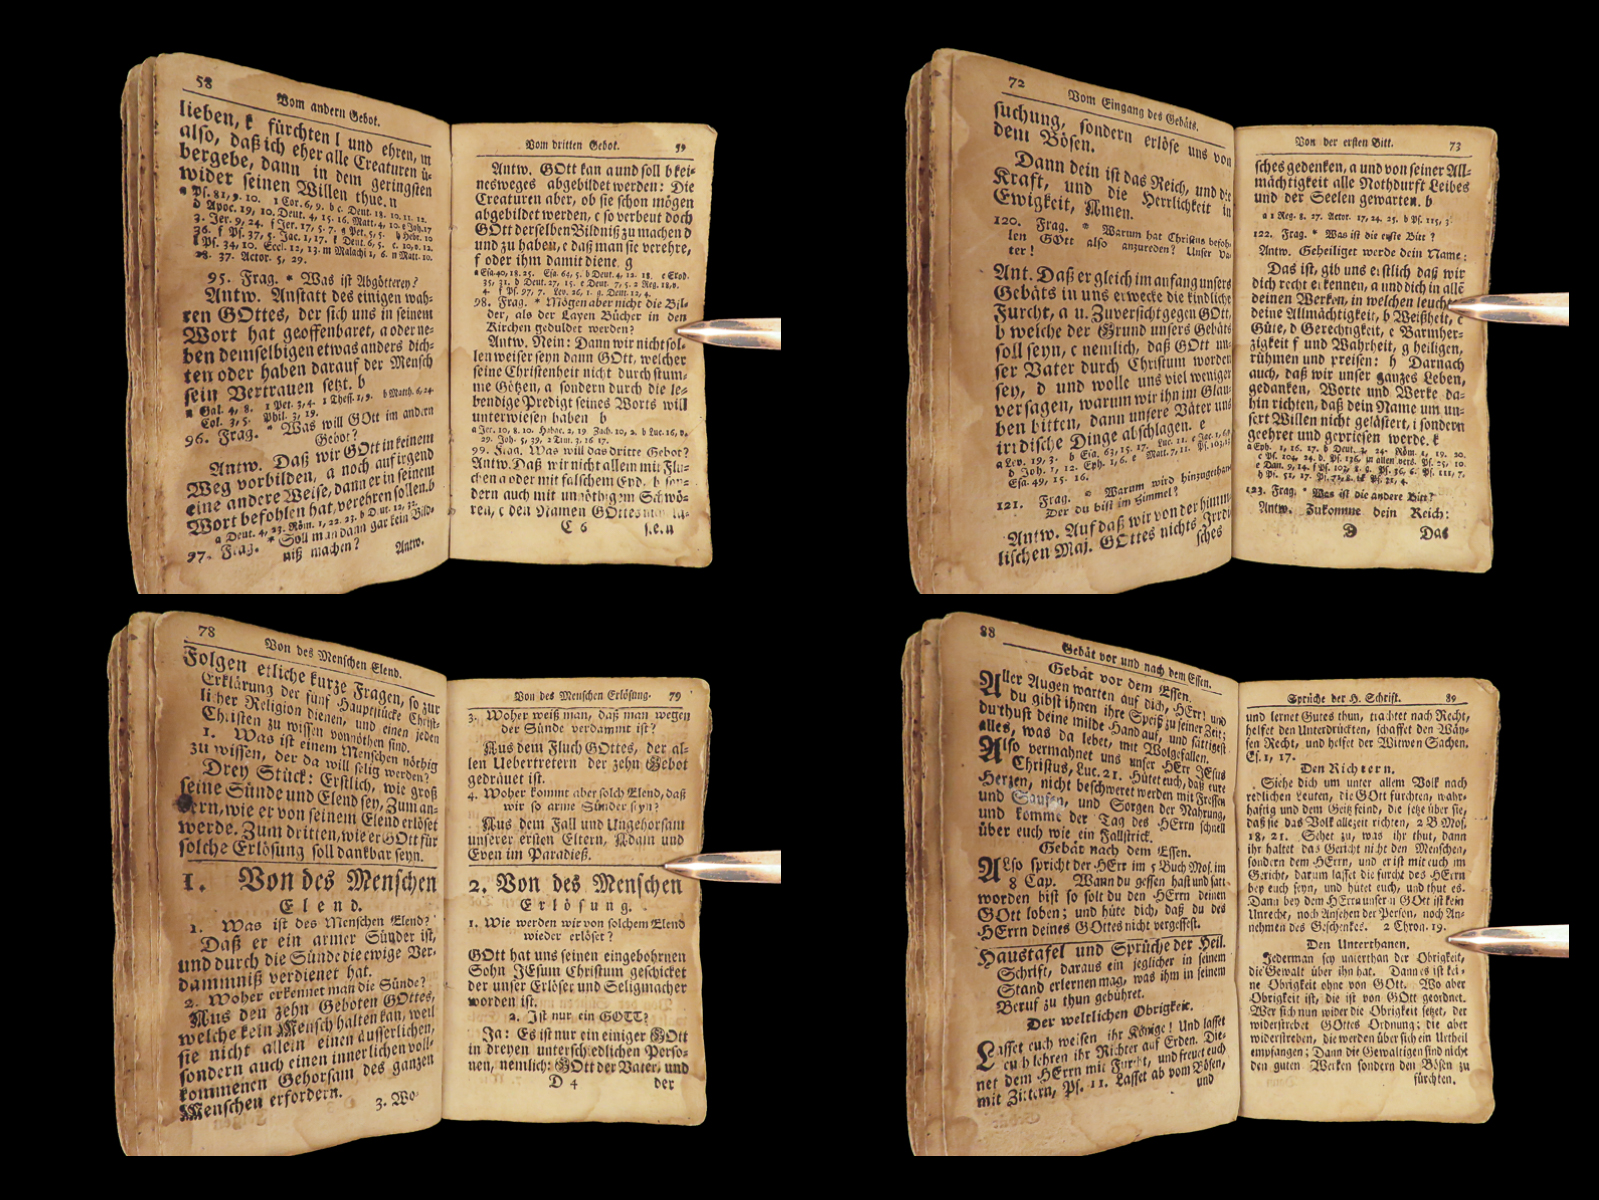 58
Vom andern Gebot.
lieben, k fürchten l und ehren, m
also, daß ich eher alle Creaturen ü-
bergebe, dann in dem geringsten
wider seinen Willen thue. n
a Ps. 81, 9. 10. 1 Cor. 6, 9. b c. Deut. 18. 10. 11. 12.
d Apoc. 19, 10. Deut. 4, 15. 16. Matt. 4, 10. e Joh. 17
3. Jer. 9, 24. f Jer. 17, 5. 7. g Pet. 5, 5. h Hebr. 10
36. f Ps. 37, 5. Jac. 1, 17. k Deut. 6, 5. c. 10, v. 12.
l Ps. 34, 10. Eccl. 12, 13. m Malachi 1, 6. n Matt. 10.
28. 37. Actor. 5, 29.
95. Frag. * Was ist Abgötterey?
Antw. Anstatt des einigen wah-
ren GOttes, der sich uns in seinem
Wort hat geoffenbaret, a oder ne-
ben demselbigen etwas anders dich-
ten oder haben darauf der Mensch
sein Vertrauen setzt. b
a Gal. 4, 8. 1 Pet. 3, 4. 1 Thess. 1, 9. b Matth. 6, 24
Col. 3, 5. Phil. 3, 19.
96. Frag. * Was will GOtt im andern
Gebot?
Antw. Daß wir GOtt in keinem
Weg vorbilden, a noch auf irgend
eine andere Weise, dann er in seinem
Wort befohlen hat, verehren sollen. b
a Deut. 4, 23. Röm. 1, 22. 23. b D ut. 12, 32.
97. Frag. * Soll man dann gar kein Bild-
niß machen?
Antw.
Vom dritten Gebot. 59
Antw. GOtt kan a und soll b kei-
nesweges abgebildet werden: Die
Creaturen aber, ob sie schon mögen
abgebildet werden, c so verbeut doch
GOtt derselben Bildniß zu machen d
und zu haben, e daß man sie verehre,
f oder ihm damit diene. g
a Esa. 40, 18. 25. Esa. 64, 5. b Deut. 4, 12. 18. c Exod.
35, 31. d Deut. 27, 15. e Deut. 7, 5. 2 Reg. 18, v.
4. f Ps. 97, 7. Lev. 26, 1. g. Deut. 12, 4.
98. Frag. * Mögen aber nicht die Bil-
der, als der Layen Bücher in den
Kirchen geduldet werden?
Antw. Nein: Dann wir nicht sol-
len weiser seyn dann GOtt, welcher
seine Christenheit nicht durch stum-
me Götzen, a sondern durch die le-
bendige Predigt seines Worts will
unterwiesen haben b
a Jer. 10, 8. 10. Habac. 2, 19. Zach. 10, 2. b Luc. 16, v.
29. Joh. 5, 39, 2 Tim. 3, 16 17.
99. Frag. Was will das dritte Gebot?
Antw. Daß wir nicht allein mit Flu-
chen a oder mit falschem Eyd, b son-
dern auch mit unnöthigem Schwö-
ren, c den Namen GOttes
C 6
72
Vom Eingang des Gebäts.
suchung, sondern erlöse uns von
dem Bösen.
Dann dein ist das Reich, und die
Kraft, und die Herrlichkeit in
Ewigkeit, Amen.
120. Frag. * Warum hat Christus befoh-
len GOtt also anzureden? Unser Va-
ter!
Ant. Daß er gleich im anfang unsers
Gebäts in uns erwecke die kindliche
Furcht, a u. Zuversicht gegen GOtt,
b welche der Grund unsers Gebäts
soll seyn, c nemlich, daß GOtt un-
ser Vater durch Christum worden
sey, d und wolle uns viel weniger
versagen, warum wir ihn im Glau-
ben bitten, dann unsere Väter uns
irrdische Dinge abschlagen. e
a Lev. 19, 3. b Esa. 63, 15. 17. Luc. 11. c Jac. 1, 6.
d Joh. 1, 12. Eph. 1, 6. e Matt. 7, 11. Ps. 103, 13.
Esa. 49, 15. 16.
121. Frag. * Warum wird hinzugethan
Der du bist im Himmel?
Antw. Auf daß wir von der himm
lischen Maj. GOttes nichts Jrrdi
sches
Von der ersten Bitt. 73
sches gedenken, a und von seiner All-
mächtigkeit alle Nothdurft Leibes
und der Seelen gewarten. b
a 1 Reg. 8. 27. Actor. 17, 24. 25. b Ps. 115, 3.
122. Frag. * Was ist die erste Bitt?
Antw. Geheiliget werde dein Name:
Das ist, gib uns erstlich daß wir
dich recht erkennen, a und dich in allē
deinen Werken, in welchen leuchtet
deine Allmächtigkeit, b Weißheit, c
Güte, d Gerechtigkeit, e Barmher-
zigkeit f und Wahrheit, g heiligen,
rühmen und preisen: h Darnach
auch, daß wir unser ganzes Leben,
gedanken, Worte und Werke da-
hin richten, daß dein Name um un-
sert Willen nicht gelästert, i sondern
geehret und gepriesen werde. k
a Eph. 1, 16. 17. b Deut. 3, 24. Röm. 1, 19. 20.
c Ps. 104, 24. d. Ps. 136, in allen vers. Ps. 25, 10.
e Dan. 9, 14. f Ps. 103, 1. 8. g. Ps. 36, 6. Ps. 111, 7,
123. Frag. * Was ist die andere Bitt?
Antw. Zukomme dein Reich:
D Das
78
Von des Menschen Elend.
Folgen etliche kurze Fragen, so zur
Erklärung der fünf Hauptstücke Christ-
licher Religion dienen, und einen jeden
Christen zu wissen vonnöthen sind.
1. Was ist einem Menschen nöthig
zu wissen, der da will selig werden?
Drey Stück: Erstlich, wie groß
seine Sünde und Elend sey, Zum an-
dern, wie er von seinem Elend erlöset
werde. Zum dritten, wie er GOtt für
solche Erlösung soll dankbar seyn.
1. Von des Menschen
Elend.
1. Was ist des Menschen Elend?
Daß er ein armer Sünder ist,
und durch die Sünde die ewige Ver-
dammniß verdienet hat.
2. Woher erkennet man die Sünde?
Aus den zehn Geboten GOttes,
welche kein Mensch halten kan, weil
sie nicht allein einen äusserlichen,
sondern auch einen innerlichen voll-
kommenen Gehorsam des ganzen
Menschen erfordern.
3. Wo-
Von des Menschen Erlösung. 79
3. Woher weiß man, daß man wegen
der Sünde verdammt ist?
Aus dem Fluch GOttes, der al-
len Uebertretern der zehn Gebot
gedräuet ist.
4. Woher kommt aber solch Elend, daß
wir so arme Sünder seyn?
Aus dem Fall und Ungehorsam
unserer ersten Eltern, Adam und
Even im Paradieß.
2. Von des Menschen
Erlösung.
1. Wie werden wir von solchem Elend
wieder erlöset?
GOtt hat uns seinen eingebohrnen
Sohn JEsum Christum geschicket
der unser Erlöser und Seligmacher
worden ist.
2. Ist nur ein GOTT?
Ja: Es ist nur ein einiger GOtt
in dreyen unterschiedlichen Perso-
nen, nemlich: GOtt der Vater, und
D 4 der
88
Gebät vor und nach dem Essen.
Gebät vor dem Essen.
Aller Augen warten auf dich, HErr! und
du gibst ihnen ihre Speiß zu seiner Zeit;
du thust deine milde Hand auf, und sättigest
alles, was da lebet, mit Wolgefallen.
Also vermahnet uns unser HErr JEsus
Christus, Luc. 21. Hütet euch, daß eure
Herzen, nicht beschweret werden mit Fressen
und Saufen, und Sorgen der Nahrung,
und komme der Tag des HErrn schnell
über euch wie ein Fallstrick.
Gebät nach dem Essen.
Also spricht der HErr im 5 Buch Mos. im
8 Cap. Wann du gessen hast und satt
worden bist so solt du den HErrn deinen
GOtt loben; und hüte dich, daß du des
HErrn deines GOttes nicht vergessest.
Haustafel und Sprüche der Heil.
Schrift, daraus ein jeglicher in seinem
Stand erlernen mag, was ihm in seinem
Beruf zu thun gebühret.
Der weltlichen Obrigkeit.
Lasset euch weisen ihr Könige! Und lasset
euch lehren ihr Richter auf Erden. Die-
net dem HErrn mit Furcht, und freuet euch
mit Zittern, Ps. 11. Lasset ab vom Bösen,
und
Sprüche der H. Schrift. 89
und lernet Gutes thun, trachtet nach Recht,
helfet den Unterdrückten, schaffet den Wäy-
sen Recht, und helfet der Witwen Sachen.
Es. 1, 17.
Den Richtern.
Siehe dich um unter allem Volk nach
redlichen Leuten, die GOtt fürchten, wahr-
haftig und dem Geitz feind, die setze über sie,
daß sie das Volk allezeit richten, 2 B Mos.
18, 21. Sehet zu, was ihr thut, dann
ihr haltet das Gericht nicht den Menschen,
sondern dem HErrn, und er ist mit euch im
Gericht, darum lasset die furcht des HErrn
bey euch seyn, und hütet euch, und thut es.
Dann bey dem HErrn unsern GOtt ist kein
Unrecht, noch Ansehen der Person, noch An-
nehmen des Geschenkes. 2 Chron. 19.
Den Unterthanen.
Jederman sey unterthan der Obrigkeit,
die Gewalt über ihn hat. Dann es ist kei-
ne Obrigkeit ohne von GOtt. Wo aber
Obrigkeit ist, die ist von GOtt geordnet.
Wer sich nun wider die Obrigkeit setzet, der
widerstrebet GOttes Ordnung; die aber
widerstreben, die werden über sich ein Urtheil
empfangen; Dann die Gewaltigen sind nicht
den guten Werken sondern den Bösen zu
fürchten.